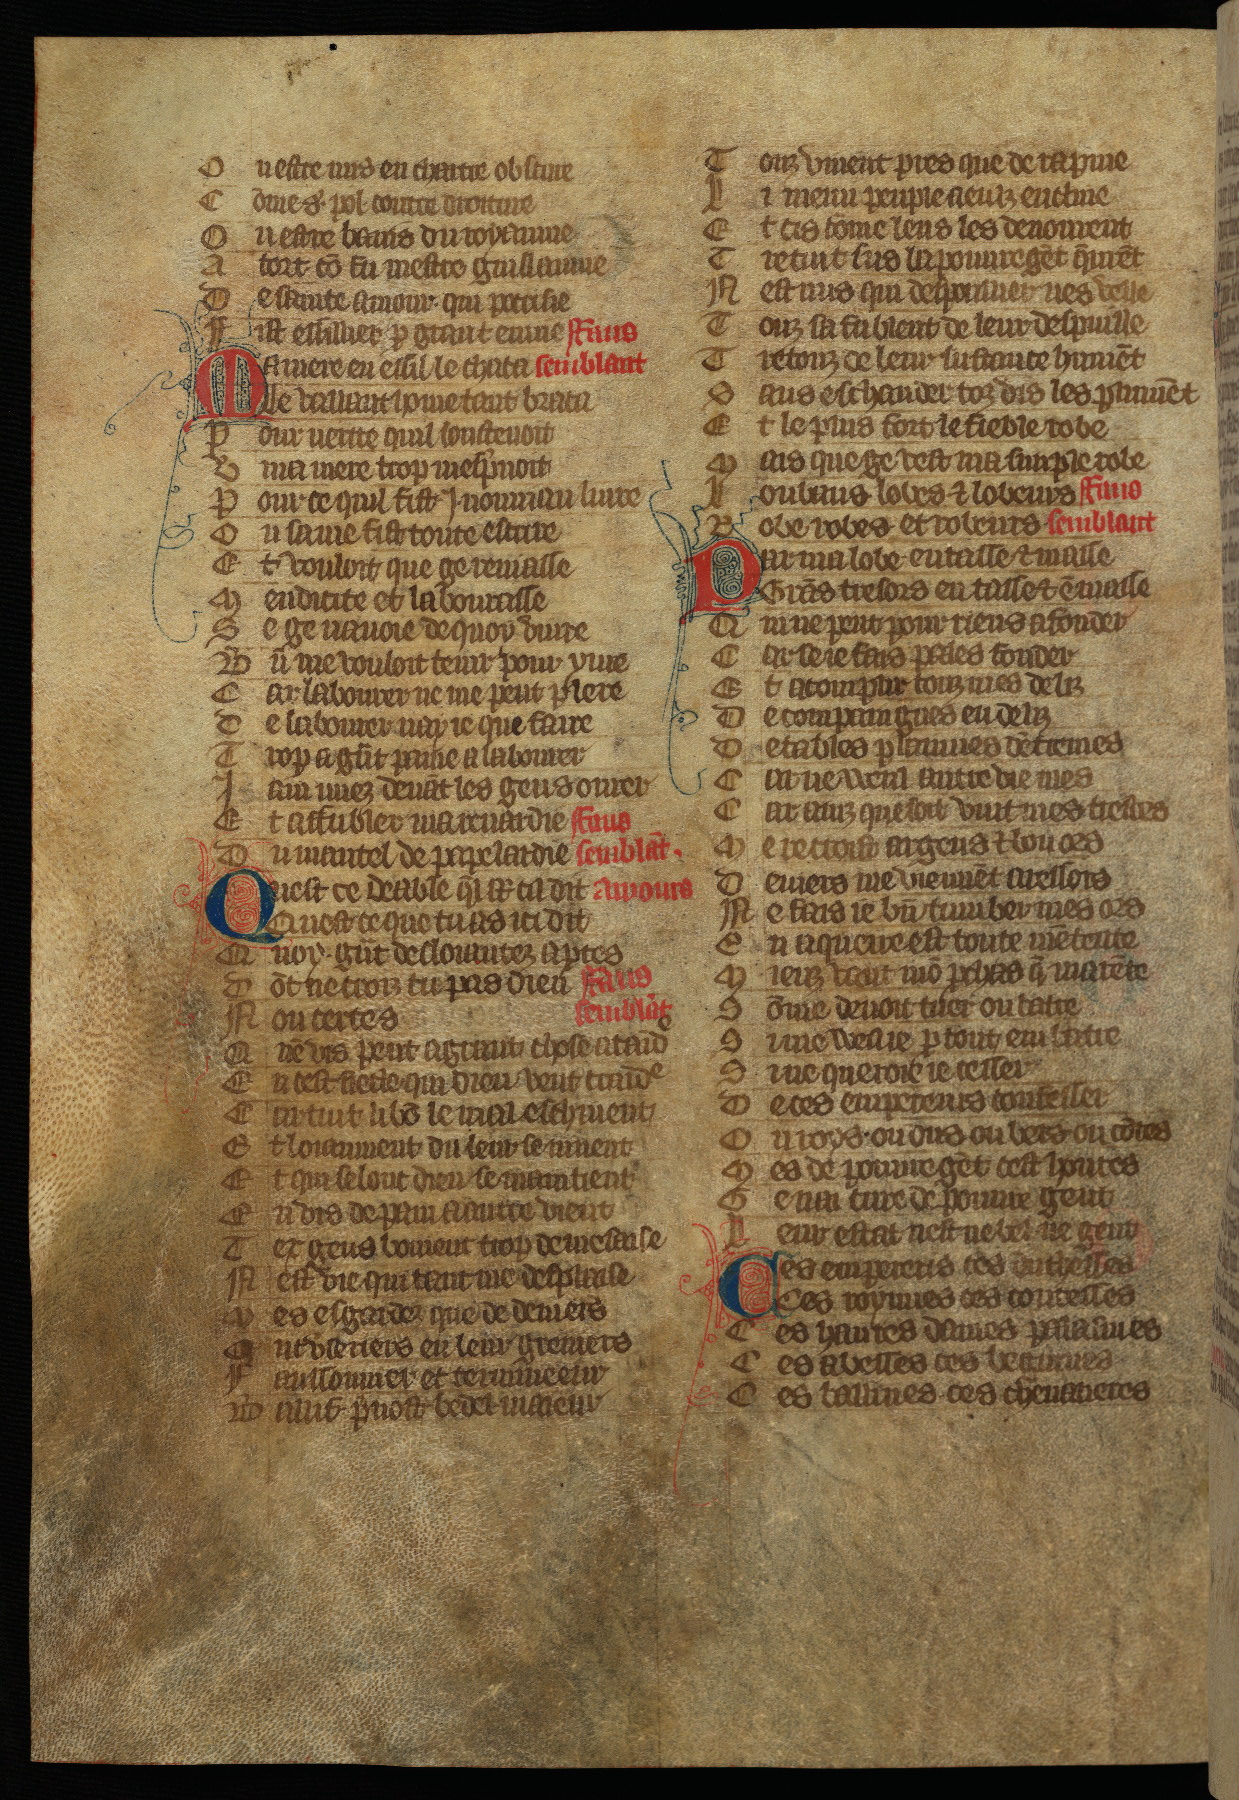 O u estre mis en chartre obscure
C õme s. pol contre droiture
O u estre banis du royaume
A tort cõ fu mestre guillaume
D e sainte amour qui ypocrisie
F ist essillier p grant enuie ffaus
Ma mere en essil le chaca semblant
Le vaillant home tant braca
P our verite quil soustenoit
V ers ma mere trop mespnoit
P our ce quil fist .j. nouuiau liure
O u sa vie fist toute escrire
E t vouloit que ge reniasse
M endicite et labourasse
S e ge nauoie de quoy viure
B ñ me vouloit tenir pour yure
C ar labourer ne me peut plere
D e labourer nay ie que faire
T rop a gñt paine a labourer
J aim miex deuãt les gens ourer
E t affubler ma renardie ffaus
D u mantel de papelardie semblãt.
Quest ce deable qi st ta dit amours
Quest ce que tu as ici dit
Q uoy. gñt desloiautez aptes
D õt ne croiz tu pas dieu ffaus
N on certes semblãt
Q
E n cest siecle qui dieu veut craidre
C ar tuit cil q le mal eschiuent
E t loiaument du leur se viuent
E t qui selonc dieu se maintient
E n vis de pain a autre vient
T ex gens boiuent trop de mesaise
N est vie qui tant me desplaise
M es esgardez que de deniers
O nt vseriers en leur greniers
F aussonnier et termineeur
B aillif puost bedel maieur
T ouz viuent pres que de rapine
L i menu peuple a eulz encline
E t cis cõme leus les deuourent
T restuit sus la pouure gẽt queurẽt
N est nus qui despouillier nes veille
T ouz sa fublent de leur despuille
T restouz de leur sustance hument
S ans eschauder toz vis les plumẽt
E t le plus fort le fieble robe
M ais que ge vest ma simple robe
L oubaus lobes & lobeurs ffaus
R obe robes et robeurs semblant
Par ma lobe entasse & masse
Grãs tresors en tasse & ẽ masse
Q ui ne peut pour riens afonder
C ar se ie fais pales fonder
E t acomplir touz mes deliz
D e compaingnes en deliz
D e tables plaines dẽtremes
C ar ne weul autre vie mes
C ar ainz que soit vuit mes tresors
M e recroist argens & lou ors
D eniers me viennẽt a ressors
N e fais ie bñ tumber mes ors
E n aquerre est toute mẽtente
M ieuz vaut mõ pchas q̃ ma rẽte
S õme deuoit tuer ou batre
S i me weil ie p tout embatre
S i ne querroie ie cesser
D e ces empereurs confesser
O u roys. ou dus ou bers ou cõtes
M es de pouure gẽt cest hontes
G e nai cure de pouure gent
L eur estat nest ne bel ne gent
Ces empereris ces duchesses
Ces roynnes ces contesses
C es hautes dames palasines
C es abesses ces beguines
C es baillines. ces cheualieres